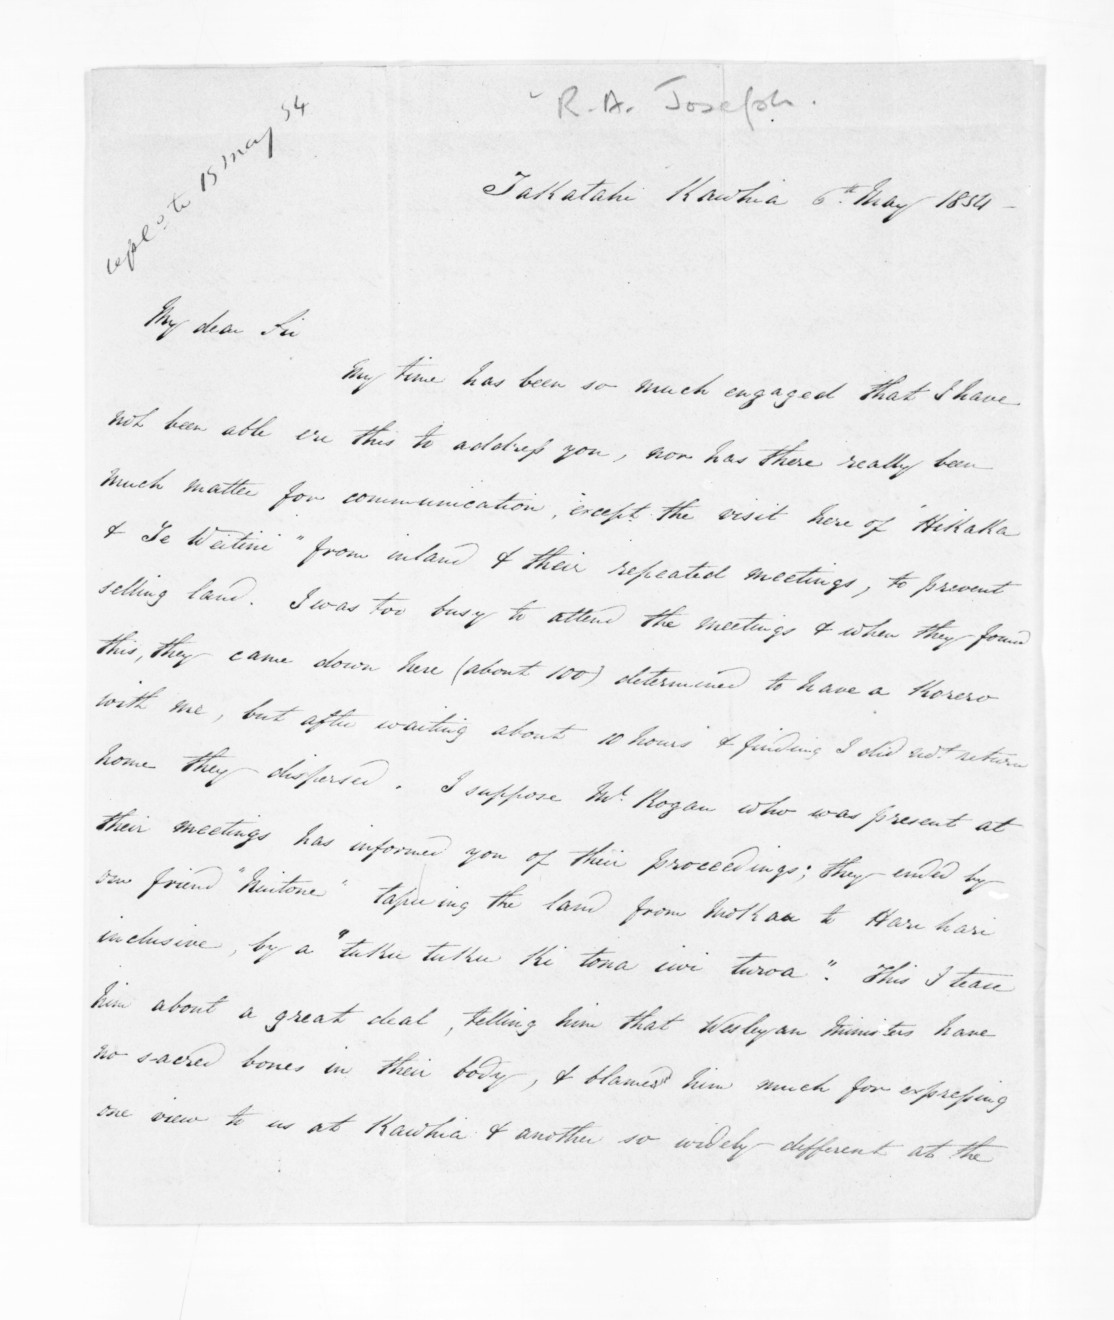 R. A. Joseph.
repld to 15 May 54
Takatahi Kawhia 6th May 1854 -
My dear Sir
My time has been so much engaged that I have
not been able ere this to address you, nor has there really been
much matter for communication, except the visit here of "Hikaka
& Te Weitini" from inland & their repeated meetings, to prevent
selling land. I was too busy to attend the meetings & when they found
this, they came down here (about 100) determined to have a Korero
with me, but after waiting about 10 hours & finding I did not return
home they dispersed. I suppose Mr. Rogan who was present at
their meetings has informed you of their proceedings; they ended by
our friend "Kuitone" tapuing the land from Mokau to Hari hari
inclusive, by a "tuku tuku ki tona iwi turoa". This I tease
him about a great deal, telling him that Wesleyan Ministers have
no sacred bones in their body, & blamed him much for expressing
one view to us at Kawhia & another so widely different at the